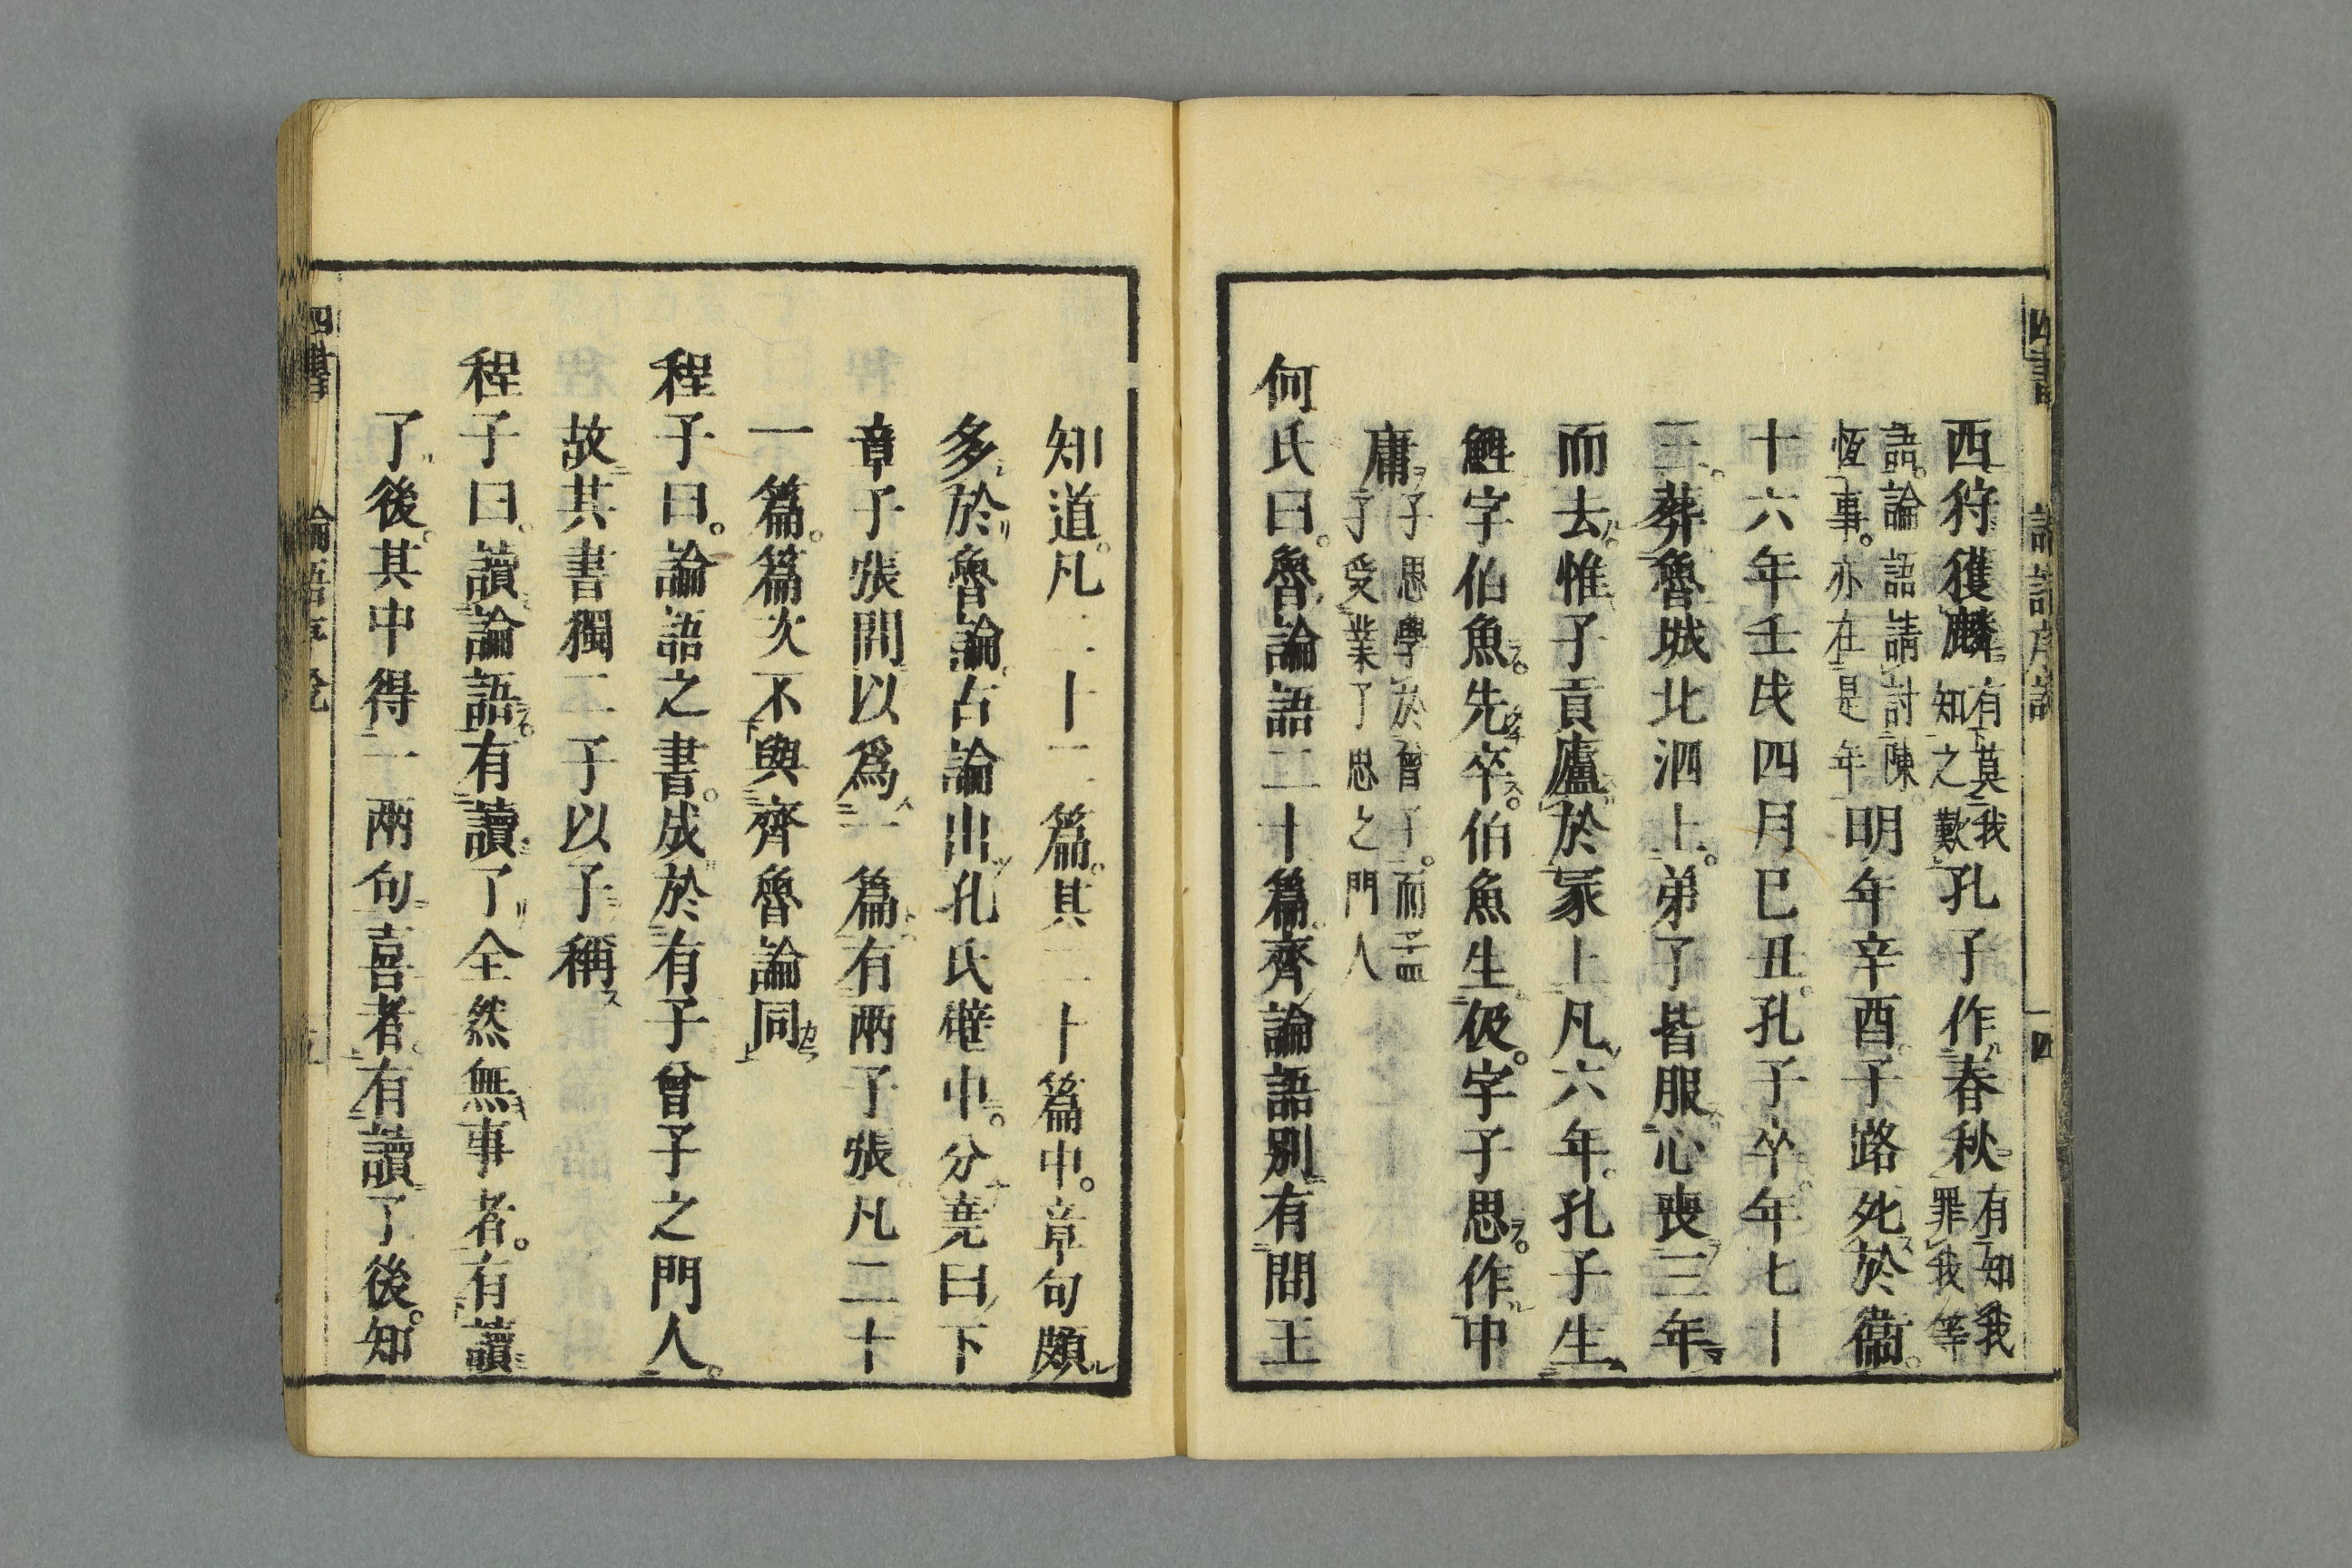 西狩獲麟有莫我知之歎孔子作春秋有知我罪我等
語。論語請討陳恆事。亦在是年明年辛酉子路死於衞。
十六年壬戌四月已丑。孔子卒。年七十
三。葬魯城北泗上。弟子皆服心喪三年
而去惟子貢廬於冢上凡六年。孔子生
鯉字伯魚。先卒。伯魚生伋。字子思。作中
庸子思學於曾子。而孟子受業子思之門人
何氏曰。魯論語二十篇。齊論語別有問王
知道。凡二十二篇。其二十篇中。章句頗
多於魯論。古論出孔氏壁中。分堯曰下
章子張問以爲一篇。有兩子張。凡二十
一篇。篇次不與齊魯論同
程子曰。論語之書。成於有子曾子之門人。
故其書獨二子以子稱
程子曰。讀論語。有讀了全然無事者。有讀
了後。其中得一兩句喜者。有讀了後。知
四書
論語序說
四
四書
論語序說